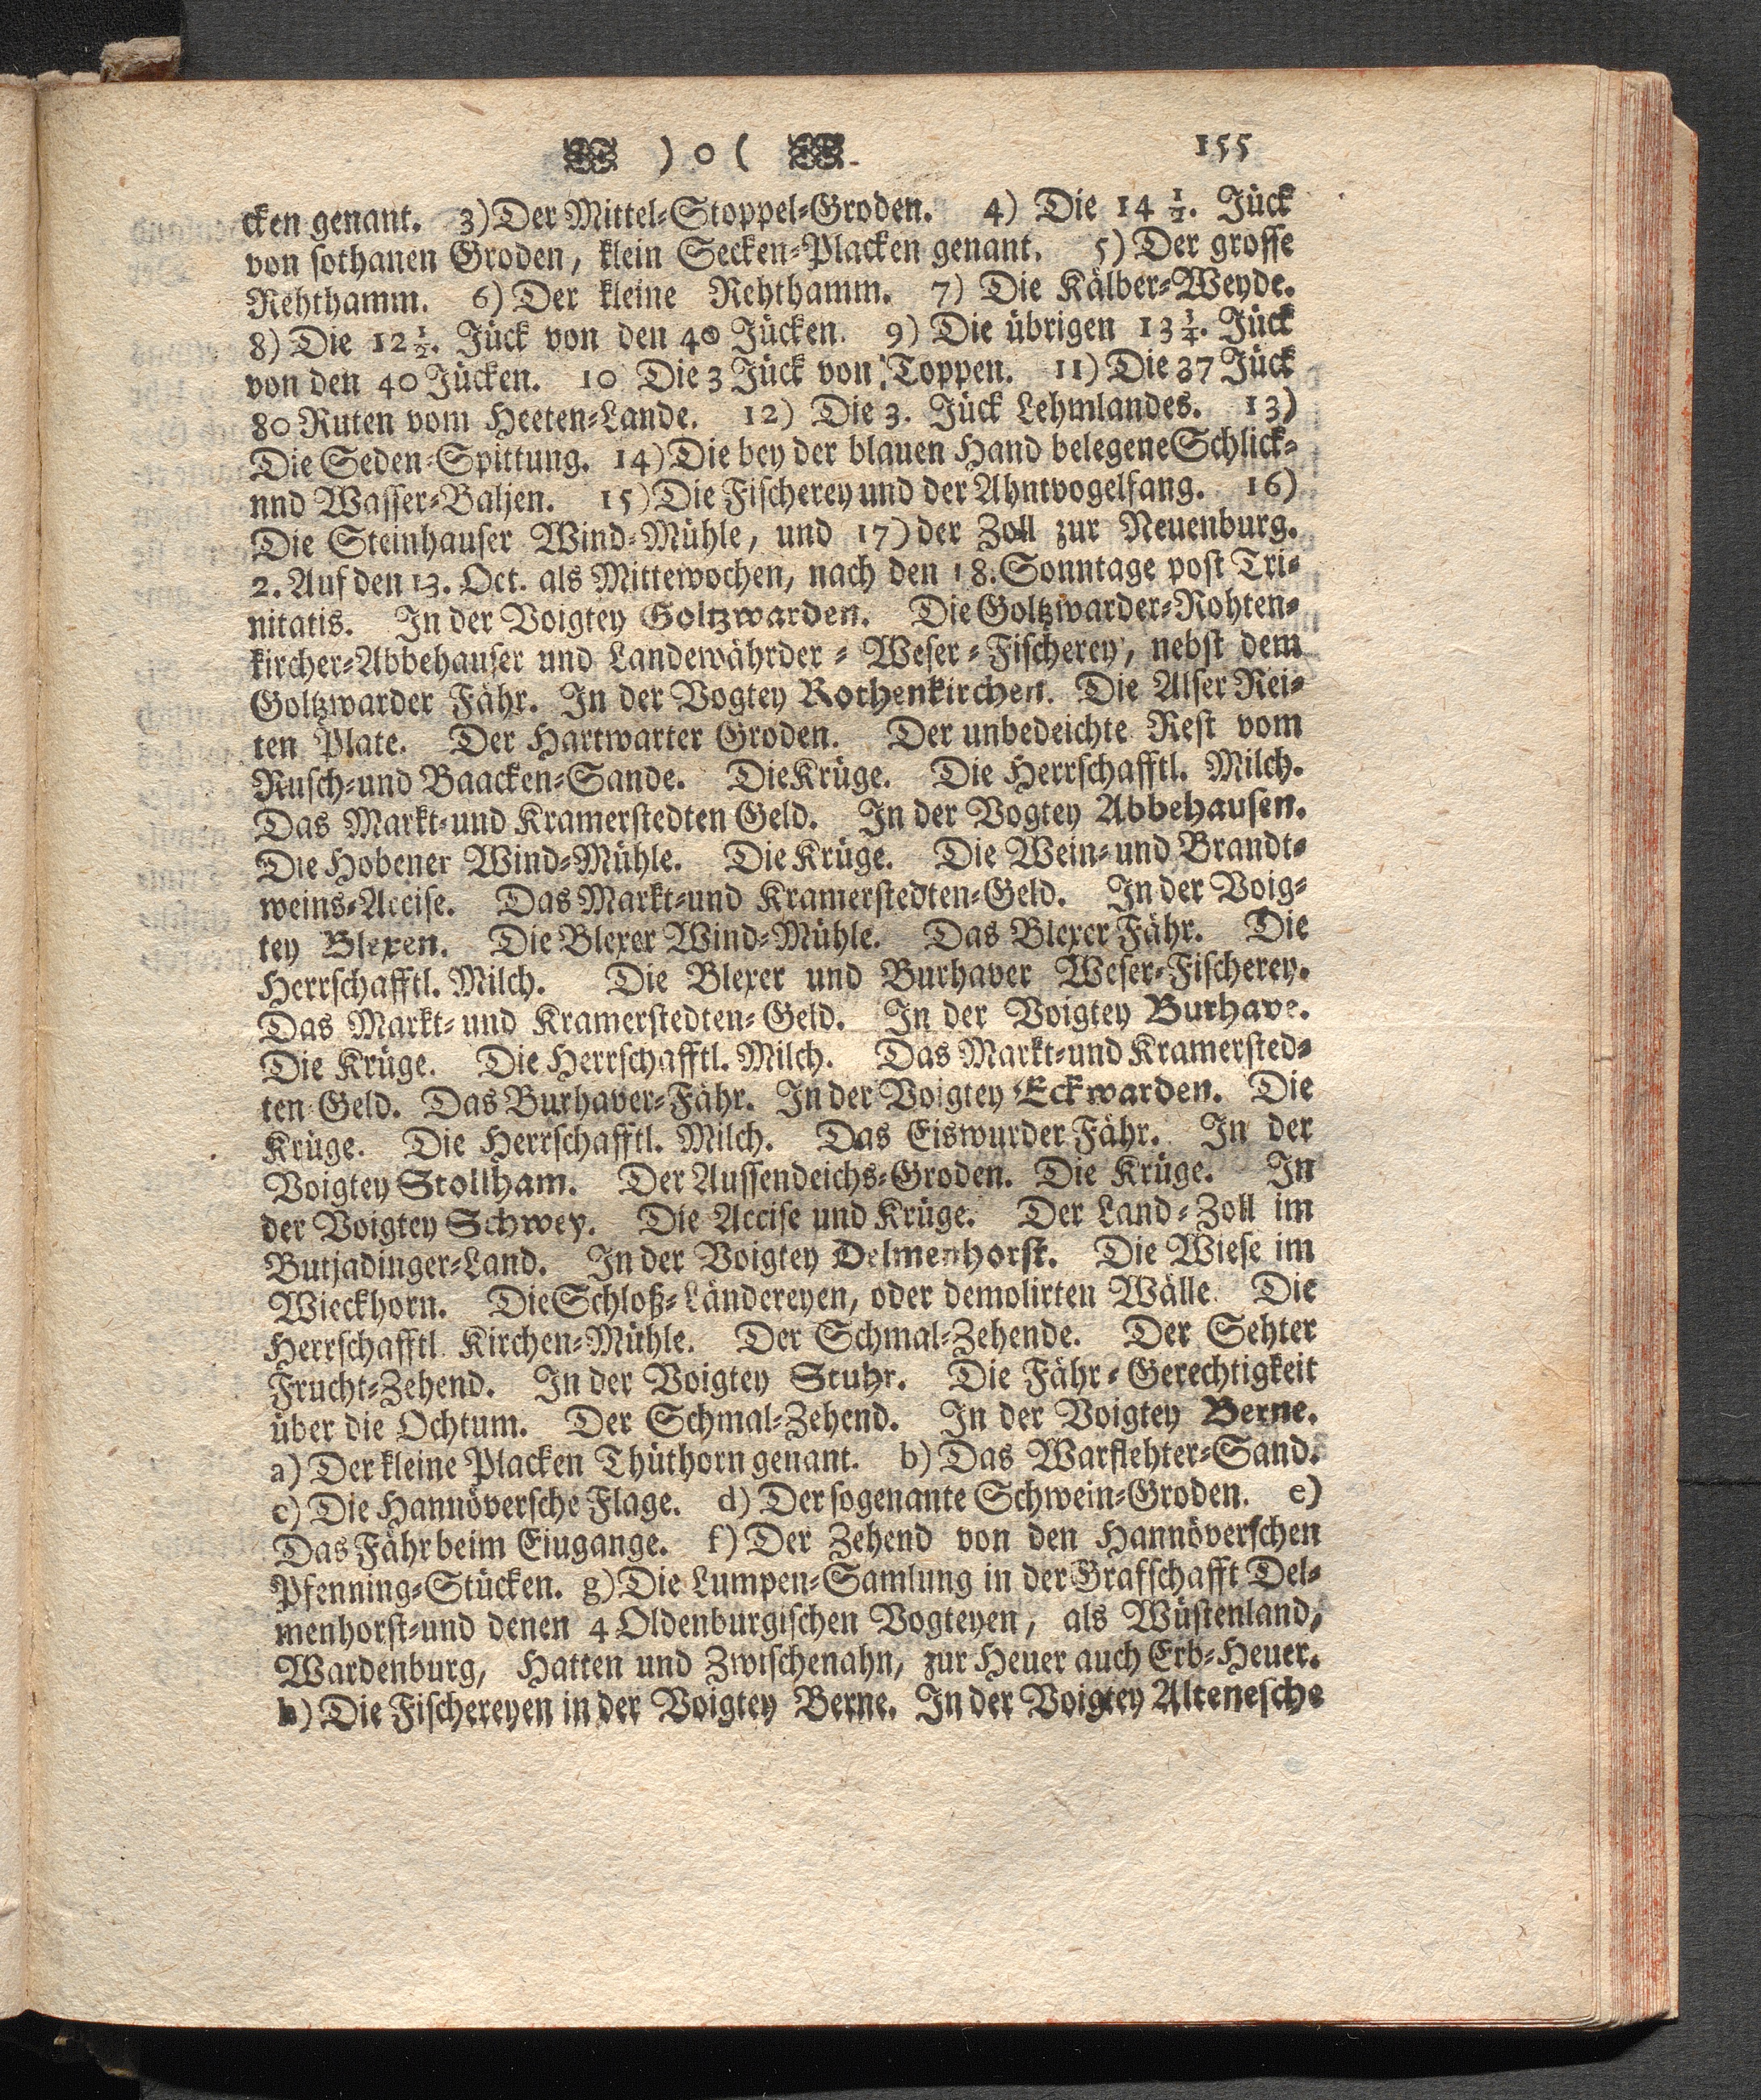 ) o ( 155
cken genant. 3) Der Mittel-Stoppel-Groden. 4) Die 14 1/2. Jück
von sothanen Groden, klein Secken-Placken genant. 5) Der grosse
Rehthamm. 6) Der kleine Rehthamm. 7) Die Kälber-Weyde.
8) Die 12 1/2. Jück von den 40 Jücken. 9) Die übrigen 13 3/4. Jück
von den 40 Jücken. 10 Die 3 Jück von Toppen. 11) Die 37 Jück
80 Ruten vom Heeten-Lande. 12) Die 3. Jück Lehmlandes. 13)
Die Seden-Spittung. 14) Die bey der blauen Hand belegene Schlick-
nnd Wasser-Baljen. 15) Die Fischerey und der Ahntvogelfang. 16)
Die Steinhauser Wind-Mühle, und 17) der Zoll zur Neuenburg.
2. Auf den 13. Oct. als Mittewochen, nach den 18. Sonntage post Tri-
nitatis. In der Voigtey Goltzwarden. Die Goltzwarder-Rohten-
kircher-Abbehauser und Landewährder-Weser-Fischerey, nebst dem
Goltzwarder Fähr. In der Vogtey Rothenkirchen. Die Alser Rei-
ten Plate. Der Hartwarter Groden. Der unbedeichte Rest vom
Rusch-und Baacken-Sande. Die Krüge. Die Herrschafftl. Milch.
Das Markt-und Kramerstedten Geld. In der Vogtey Abbehausen.
Die Hobener Wind-Mühle. Die Krüge. Die Wein-und Brandt-
weins-Accise. Das Markt-und Kramerstedten-Geld. In der Voig-
tey Blexen. Die Blexer Wind-Mühle. Das Blexer Fähr. Die
Herrschafftl. Milch. Die Blexer und Burhaver Weser-Fischerey.
Das Markt-und Kramerstedten-Geld. In der Voigtey Burhave.
Die Krüge. Die Herrschafftl. Milch. Das Markt-und Kramersted-
ten-Geld. Das Burhaver-Fähr. In der Voigtey Eckwarden. Die
Krüge. Die Herrschafftl. Milch. Das Eiswurder Fähr. In der
Voigtey Stollham. Der Aussendeichs-Groden. Die Krüge. In
der Voigtey Schwey. Die Accise und Krüge. Der Land-Zoll im
Butjadinger-Land. In der Voigtey Delmenhorst. Die Wiese im
Wieckhorn. Die Schloß-Ländereyen, oder demolirten Wälle. Die
Herrschafftl. Kirchen-Mühle. Der Schmal-Zehende. Der Sehter
Frucht-Zehend. In der Voigtey Stuhr. Die Fähr-Gerechtigkeit
über die Ochtum. Der Schmal-Zehend. In der Voigtey Berne.
a) Der kleine Placken Thüthorn genant. b) Das Warflehter-Sand.
c) Die Hannöversche Flage. d) Der sogenante Schwein-Groden. e)
Das Fähr beim Eiugange. f) Der Zehend von den Hannöverschen
Pfenning-Stücken. g) Die Lumpen-Samlung in der Grafschafft Del-
menhorst-und denen 4 Oldenburgischen Vogteyen, als Wüstenland,
Wardenburg, Hatten und Zwischenahn, zur Heuer auch Erb-Heuer.
h) Die Fischereyen in der Voigtey Berne. In der Voigtey Altenesche